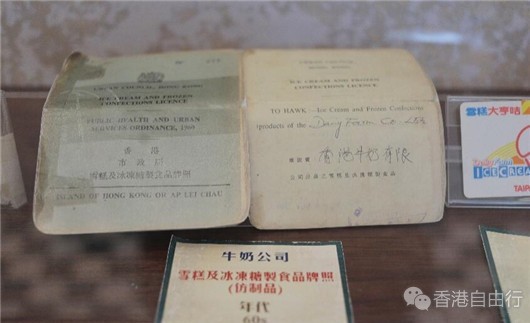 URBAN COUNCIL, HONG KONG
ICE CREAM AND FROZEN
CONFECTIONS LICENCE
PUBLIC HEALTH AND URBAN
SERVICES ORDINANCE, 1960
香港
市政局
雪糕及冰凍糖製食品牌照
ISLAND OF HONG KONG OR AP LEI CHAU
URBAN COUNCIL
HONG KONG
ICE CREAM AND FROZEN
CONFECTIONS LICENCE
TO HAWK—Ice Cream and Frozen Confections
(products of the Dairy Farm Co. Ltd
香港牛奶有限
雪糕大亨
Dairy Farm
ICE CREAM
TAIP
牛奶公司
雪糕及冰凍糖製食品牌照
(仿制品)
年代
60s
香港自由行